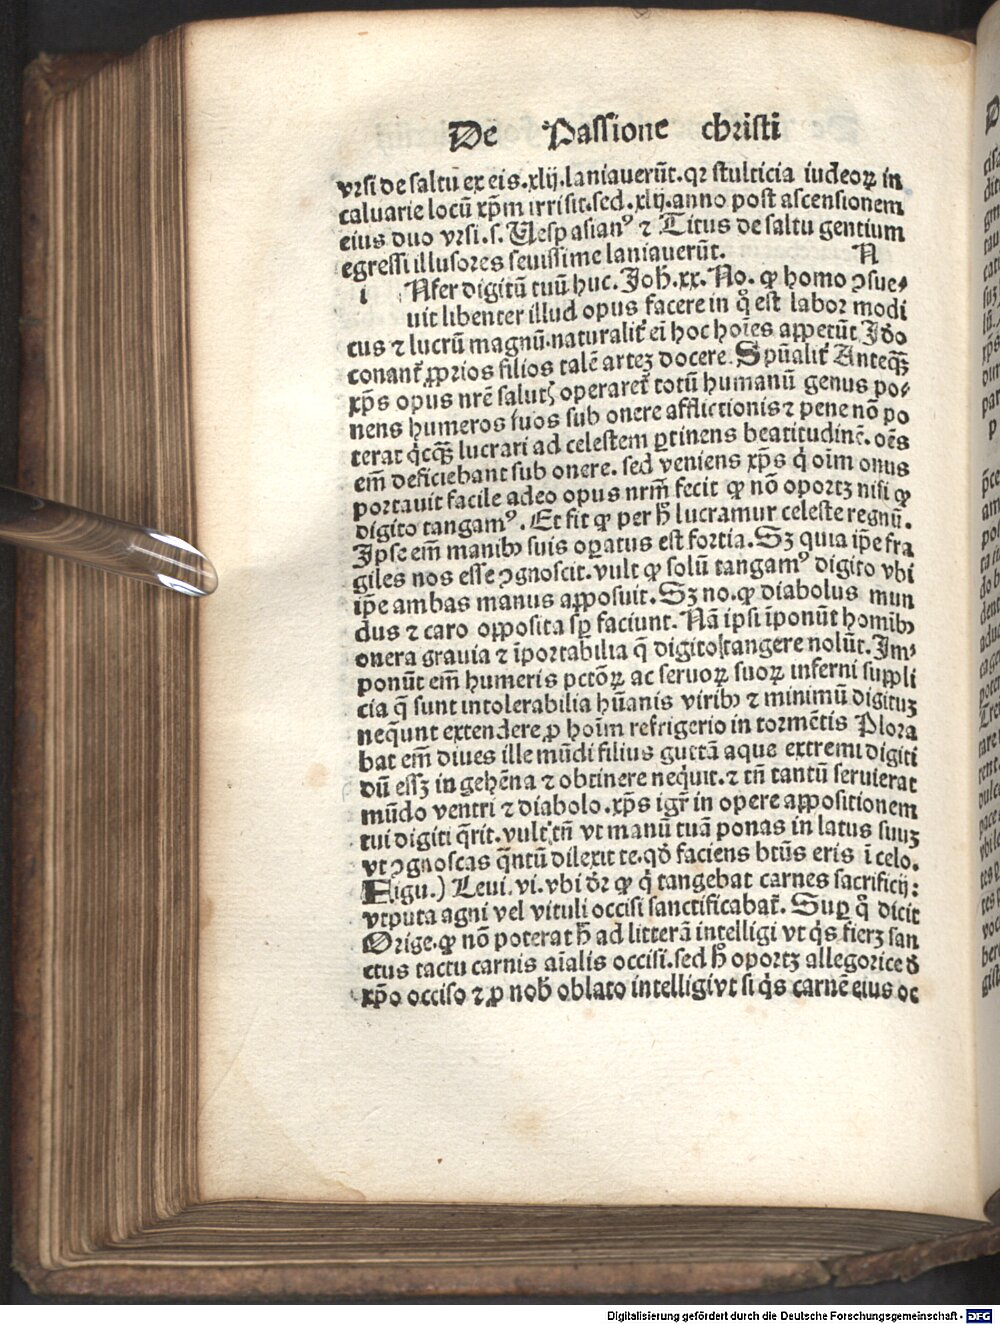 De Passione christi
vrsi de saltu ex eis.xlij.laniauerūt.qꝛ stulticia iudeoꝝ in
caluarie locū xp̄m irrisit.sed.xlij.anno post ascensionem
eius duo vrsi.s.Uespasianꝰ ⁊ Titus de saltu gentium
egressi illusores seuissime laniauerūt. N
i Nfer digitū tuū huc. Joh̄.xx. No. ꝙ homo ꝯsue⸗
uit libenter illud opus facere in q̊ est labor modi
cus ⁊ lucrū magnū.naturalit̄ em̄ hoc hoīes appetūt Jdo
conant̄ ꝓprios filios talē artez docere. Spūalit̄ Anteqꝫ
xp̄s opus nr̄e salutꝭ operaret̄ totū humanū genus po⸗
nens humeros suos sub onere afflictionis ⁊ pene nō po
terat q̇cqꝫ lucrari ad celestem ꝑtinens beatitudinē. oēs
em̄ deficiebant sub onere. sed veniens xp̄s q̇ oīm onus
portauit facile adeo opus nrm̄ fecit ꝙ nō oportꝫ nisi ꝙ
digito tangamꝰ. Et fit ꝙ per h̄ lucramur celeste regnū.
Jpse em̄ manibꝰ suis oꝑatus est fortia. Sꝫ quia ip̄e fra
giles nos esse ꝯgnoscit.vult ꝙ solū tangamꝰ digito vbi
ip̄e ambas manus apposuit. Sꝫ no.ꝙ diabolus mun
dus ⁊ caro opposita sp̄ faciunt. Nā ipsi īponūt homībꝰ
onera grauia ⁊ īportabilia q̄ digito tangere nolūt. Jm⸗
ponūt em̄ humeris pctōꝝ ac seruoꝝ suoꝝ inferni suppli
cia q̄ sunt intolerabilia hūanis viribꝰ ⁊ minimū digituꝫ
neq̇unt extendere ꝓ hoīm refrigerio in tormētis Plora
bat em̄ diues ille mūdi filius guttā aque extremi digiti
dū essꝫ in gehēna ⁊ obtinere neq̇uit.⁊ tn̄ tantū seruierat
mūdo ventri ⁊ diabolo.xp̄s igr̄ in opere appositionem
tui digiti q̄rit.vult tn̄ vt manū tuā ponas in latus suuꝫ
vt ꝯgnoscas q̄ntū dilexit te.qd̄ faciens btūs eris ī celo.
Figu.) Leui.vi.vbi dr̄ ꝙ q̇ tangebat carnes sacrificij:
vtputa agni vel vituli occisi sanctificabat̄. Suꝑ q̊ dicit
Orige.ꝙ nō poterat h̄ ad litterā intelligi vt q̇s fierꝫ san
ctus tactu carnis aīalis occisi.sed h̄ oportꝫ allegorice d̄
xp̄o occiso ⁊ ꝓ nob̄ oblato intelligi vt si q̇s carnē eius oc
Digitalisierung gefördert durch die Deutsche Forschungsgemeinschaft - DFG